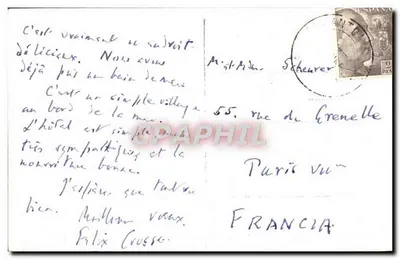 C'est vraiment un endroit
délicieux. Nous avons
déjà pris un bain de mer
C'est un simple village
au bord de la mer.
L'hôtel est simple mais
très sympathique et la
nourriture bonne.
J'espère que tout va
bien. Meilleurs voeux.
Félix
M. et Mme Scheurer
55. rue de Grenelle
Paris VII
FRANCIA.
ESPAÑA
CPAPHIL